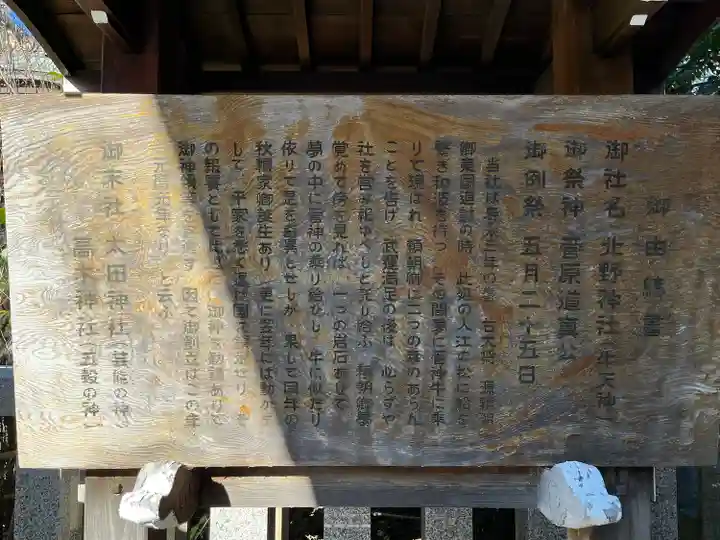 御由緒書
御社名 北野神社(牛天神)
御祭神 菅原道真公
御例祭 五月二十五日
当社は寿永三年の春 右大将 源頼朝
卿東国追討の時、此処の入江の松に船を
繋ぎ和波を待つ その間夢に菅神牛に乗
りて現はれ 頼朝卿に二つの幸のあらん
ことを告げ 武運満足の後は 必らずや
社を営み祀るべしと宣り給ふ 頼朝卿夢
覚めて傍を見れば 一つの岩石あして
夢の中に菅神の乗り給ひし 牛に似たり
依りて是を奇異とせしが 果して同年の
秋頼家卿誕生あり 更に翌年には動かず
して 平家を
の報賽として 御神を勧請ありて
御神領等を 因て御創立はこの年
元暦元年なり と云ふ
御末社 太田神社(芸能の神)
高木神社(五穀の神)